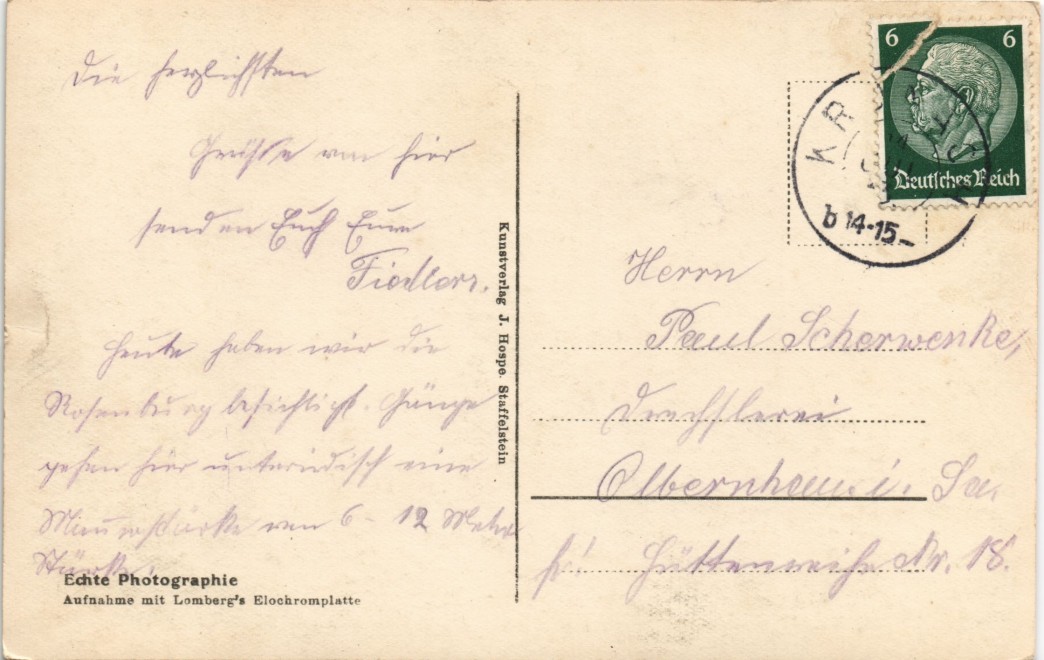 Die herzlichsten
Grüsse von hier
senden Euch Eure
Fiedlers.
Heute haben wir die
Rosenburg besichtigt. Gänge
gehen hier unterirdisch eine
Mauerstärke von 6 - 12 Meter
Stärke.
Echte Photographie
Aufnahme mit Lomberg's Elochromplatte
Kunstverlag J. Hospe. Staffelstein
6 6
Deutsches Reich
KR
b 14-15-
Herrn
Paul Scherwenke,
Drechslerei
Olbernhau i. Sa.
Hüttenweihe Nr. 18.